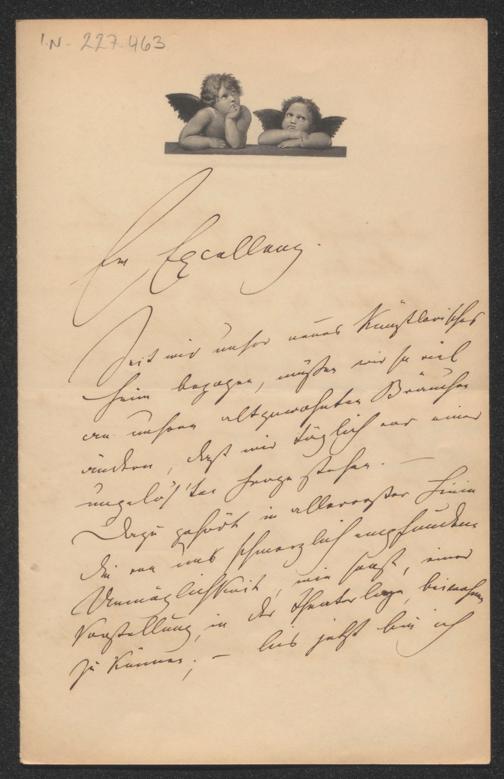 I.N. 227.463
Ew Excellenz.
Seit wir unser neues künstlerisches
Heim bezogen, müßen wir so viel
an unsern altgewohnten Bräuchen
ändern, daß wir täglich vor einer
ungelös'ten Frage stehen. —
Dazu gehört in allererster Linie
die von uns schmerzlich empfundene
Unmöglichkeit, wie sonst, einer
Vorstellung in der Theaterloge, beiwohnen
zu können; — bis jetzt bin ich